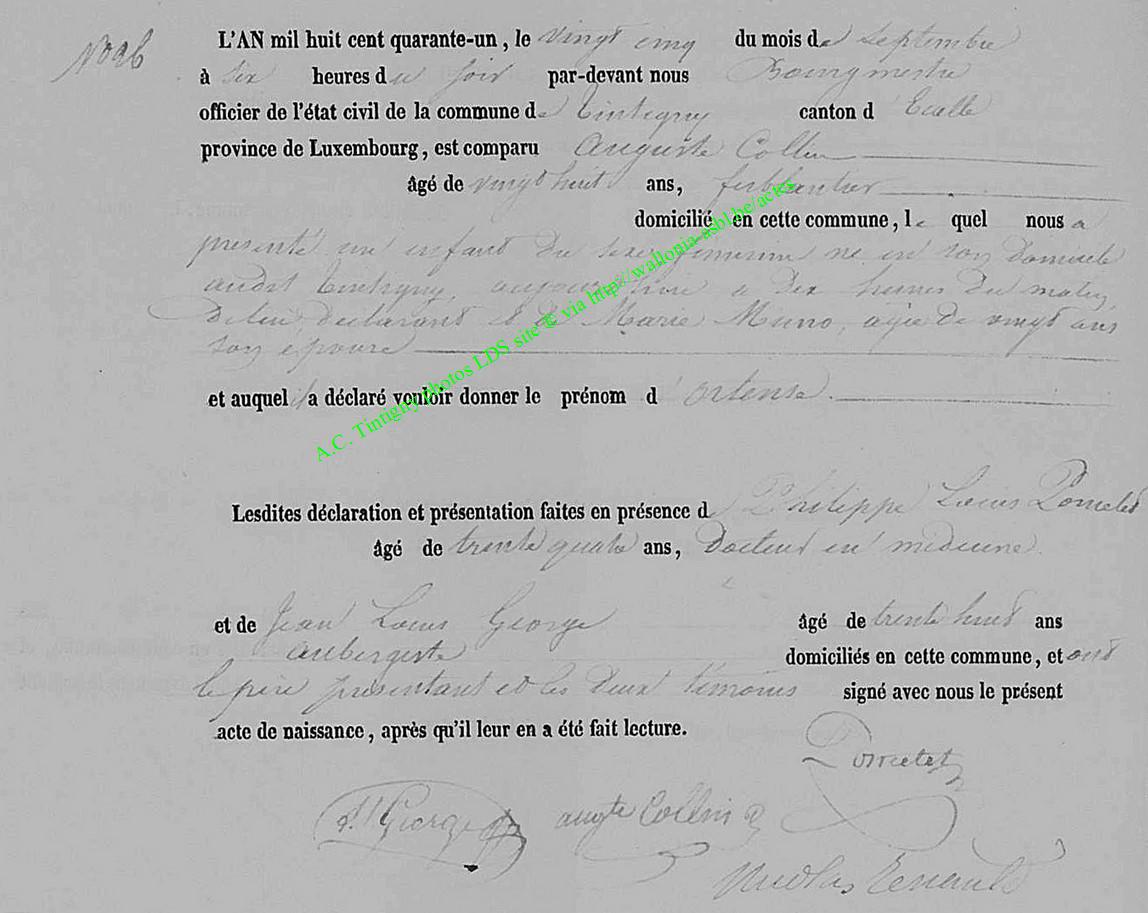 N° 26
L'AN mil huit cent quarante-un, le vingt cinq du mois de Septembre
à Six heures du soir par-devant nous Bourgmestre
officier de l'état civil de la commune de Tintigny canton d' Etalle
province de Luxembourg, est comparu Auguste Collin
âgé de vingt huit ans, ferblantier
domicilié en cette commune, le quel nous a
présenté un enfant du sexe féminin né en son domicile
audit Tintigny, aujourd'hui à dix heures du matin,
de lui déclarant et de Marie Muno, agée de vingt ans
son epouse
et auquel il a déclaré vouloir donner le prénom d' ortense.
Lesdites déclaration et présentation faites en présence de Philippe Louis
âgé de trente quatre ans, Docteur en médecine.
et de Jean Louis George âgé de trente huit ans
aubergiste domiciliés en cette commune, et ont
le père présentant et les deux témoins signé avec nous le présent
acte de naissance, après qu'il leur en a été fait lecture.
George augte Collin
Nicolas Renauld
A.C. Tintigny photos LDS site © via http://wallonia-asbl.be/actes